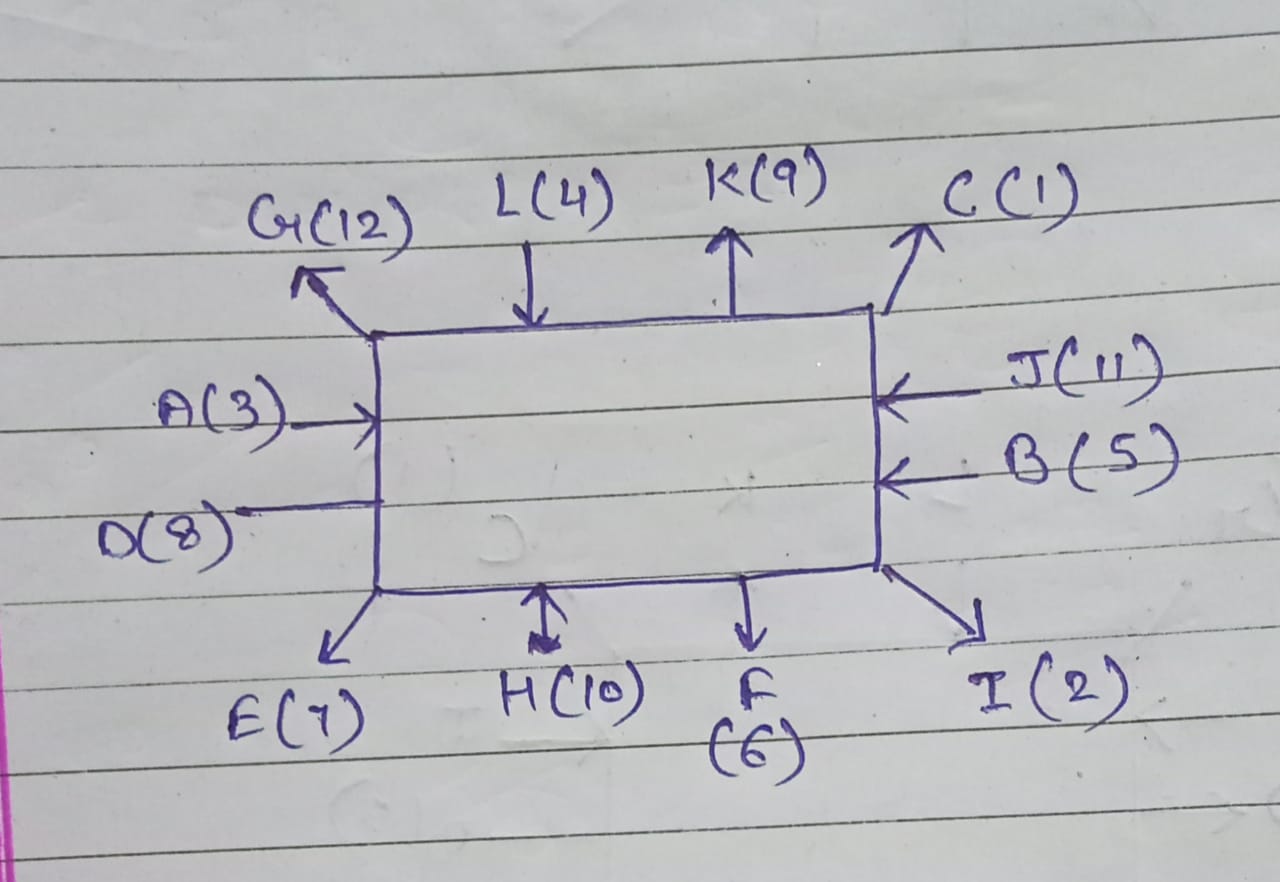 G(12) L(4) K(9) C(1)
A(3) J(11)
D(8) B(5)
E(7) H(10) F I(2)
(6)